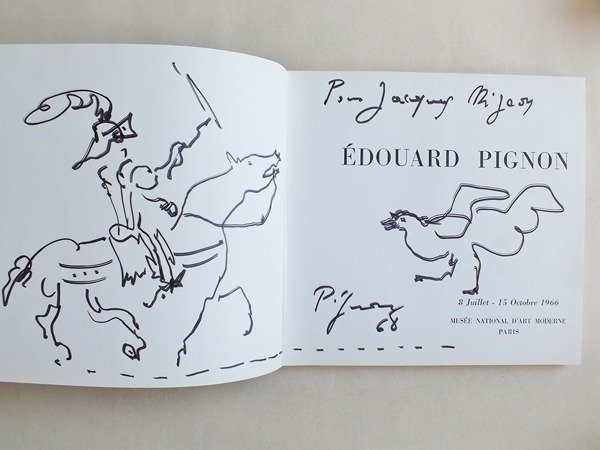 Pour Jacques
ÉDOUARD PIGNON
8 Juillet - 15 Octobre 1966
MUSÉE NATIONAL D'ART MODERNE
PARIS
Pignon
68